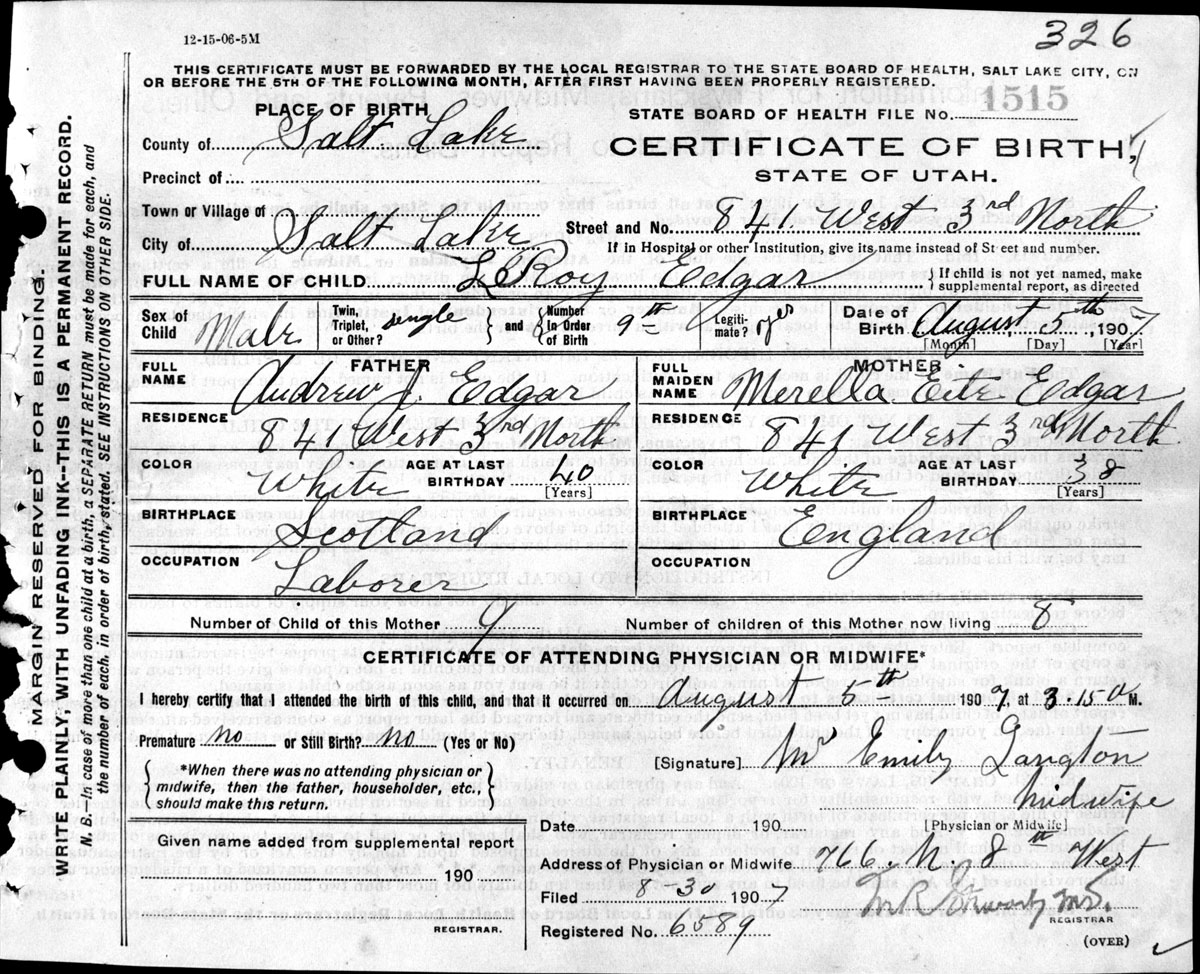 12-15-06-5M
326
THIS CERTIFICATE MUST BE FORWARDED BY THE LOCAL REGISTRAR TO THE STATE BOARD OF HEALTH, SALT LAKE CITY, ON
OR BEFORE THE 5TH OF THE FOLLOWING MONTH, AFTER FIRST HAVING BEEN PROPERLY REGISTERED.
PLACE OF BIRTH
STATE BOARD OF HEALTH FILE No. 1515
County of Salt Lake
CERTIFICATE OF BIRTH,
Precinct of
STATE OF UTAH.
Town or Village of
Street and No. 841 West 3rd North
City of Salt Lake
If in Hospital or other Institution, give its name instead of Street and number.
FULL NAME OF CHILD LeRoy Edgar
If child is not yet named, make
supplemental report, as directed
Sex of Child Male
Twin, Triplet, or Other? single and Number In Order of Birth 9th
Legitimate? yes
Date of Birth August 5th 1907
[Month] [Day] [Year]
FATHER
FULL NAME Andrew J. Edgar
RESIDENCE 841 West 3rd North
COLOR White AGE AT LAST BIRTHDAY 40 [Years]
BIRTHPLACE Scotland
OCCUPATION Laborer
MOTHER
FULL MAIDEN NAME Merella Edgar
RESIDENCE 841 West 3rd North
COLOR White AGE AT LAST BIRTHDAY 38 [Years]
BIRTHPLACE England
OCCUPATION
Number of Child of this Mother 9 Number of children of this Mother now living 8
CERTIFICATE OF ATTENDING PHYSICIAN OR MIDWIFE*
I hereby certify that I attended the birth of this child, and that it occurred on August 5th 1907, at 3.15 a M.
Premature no or Still Birth? no (Yes or No)
*When there was no attending physician or
midwife, then the father, householder, etc.,
should make this return.
[Signature] Mrs Emily Langton
Midwife
[Physician or Midwife]
Date 190
Given name added from supplemental report
190
REGISTRAR.
Address of Physician or Midwife N. 8th West
Filed 8-30 1907
REGISTRAR
Registered No. 6589
(OVER)
MARGIN RESERVED FOR BINDING.
WRITE PLAINLY, WITH UNFADING INK--THIS IS A PERMANENT RECORD.
N. B. In case of more than one child at a birth, a SEPARATE RETURN must be made for each, and
the number of each, in order of birth, stated. SEE INSTRUCTIONS ON OTHER SIDE.